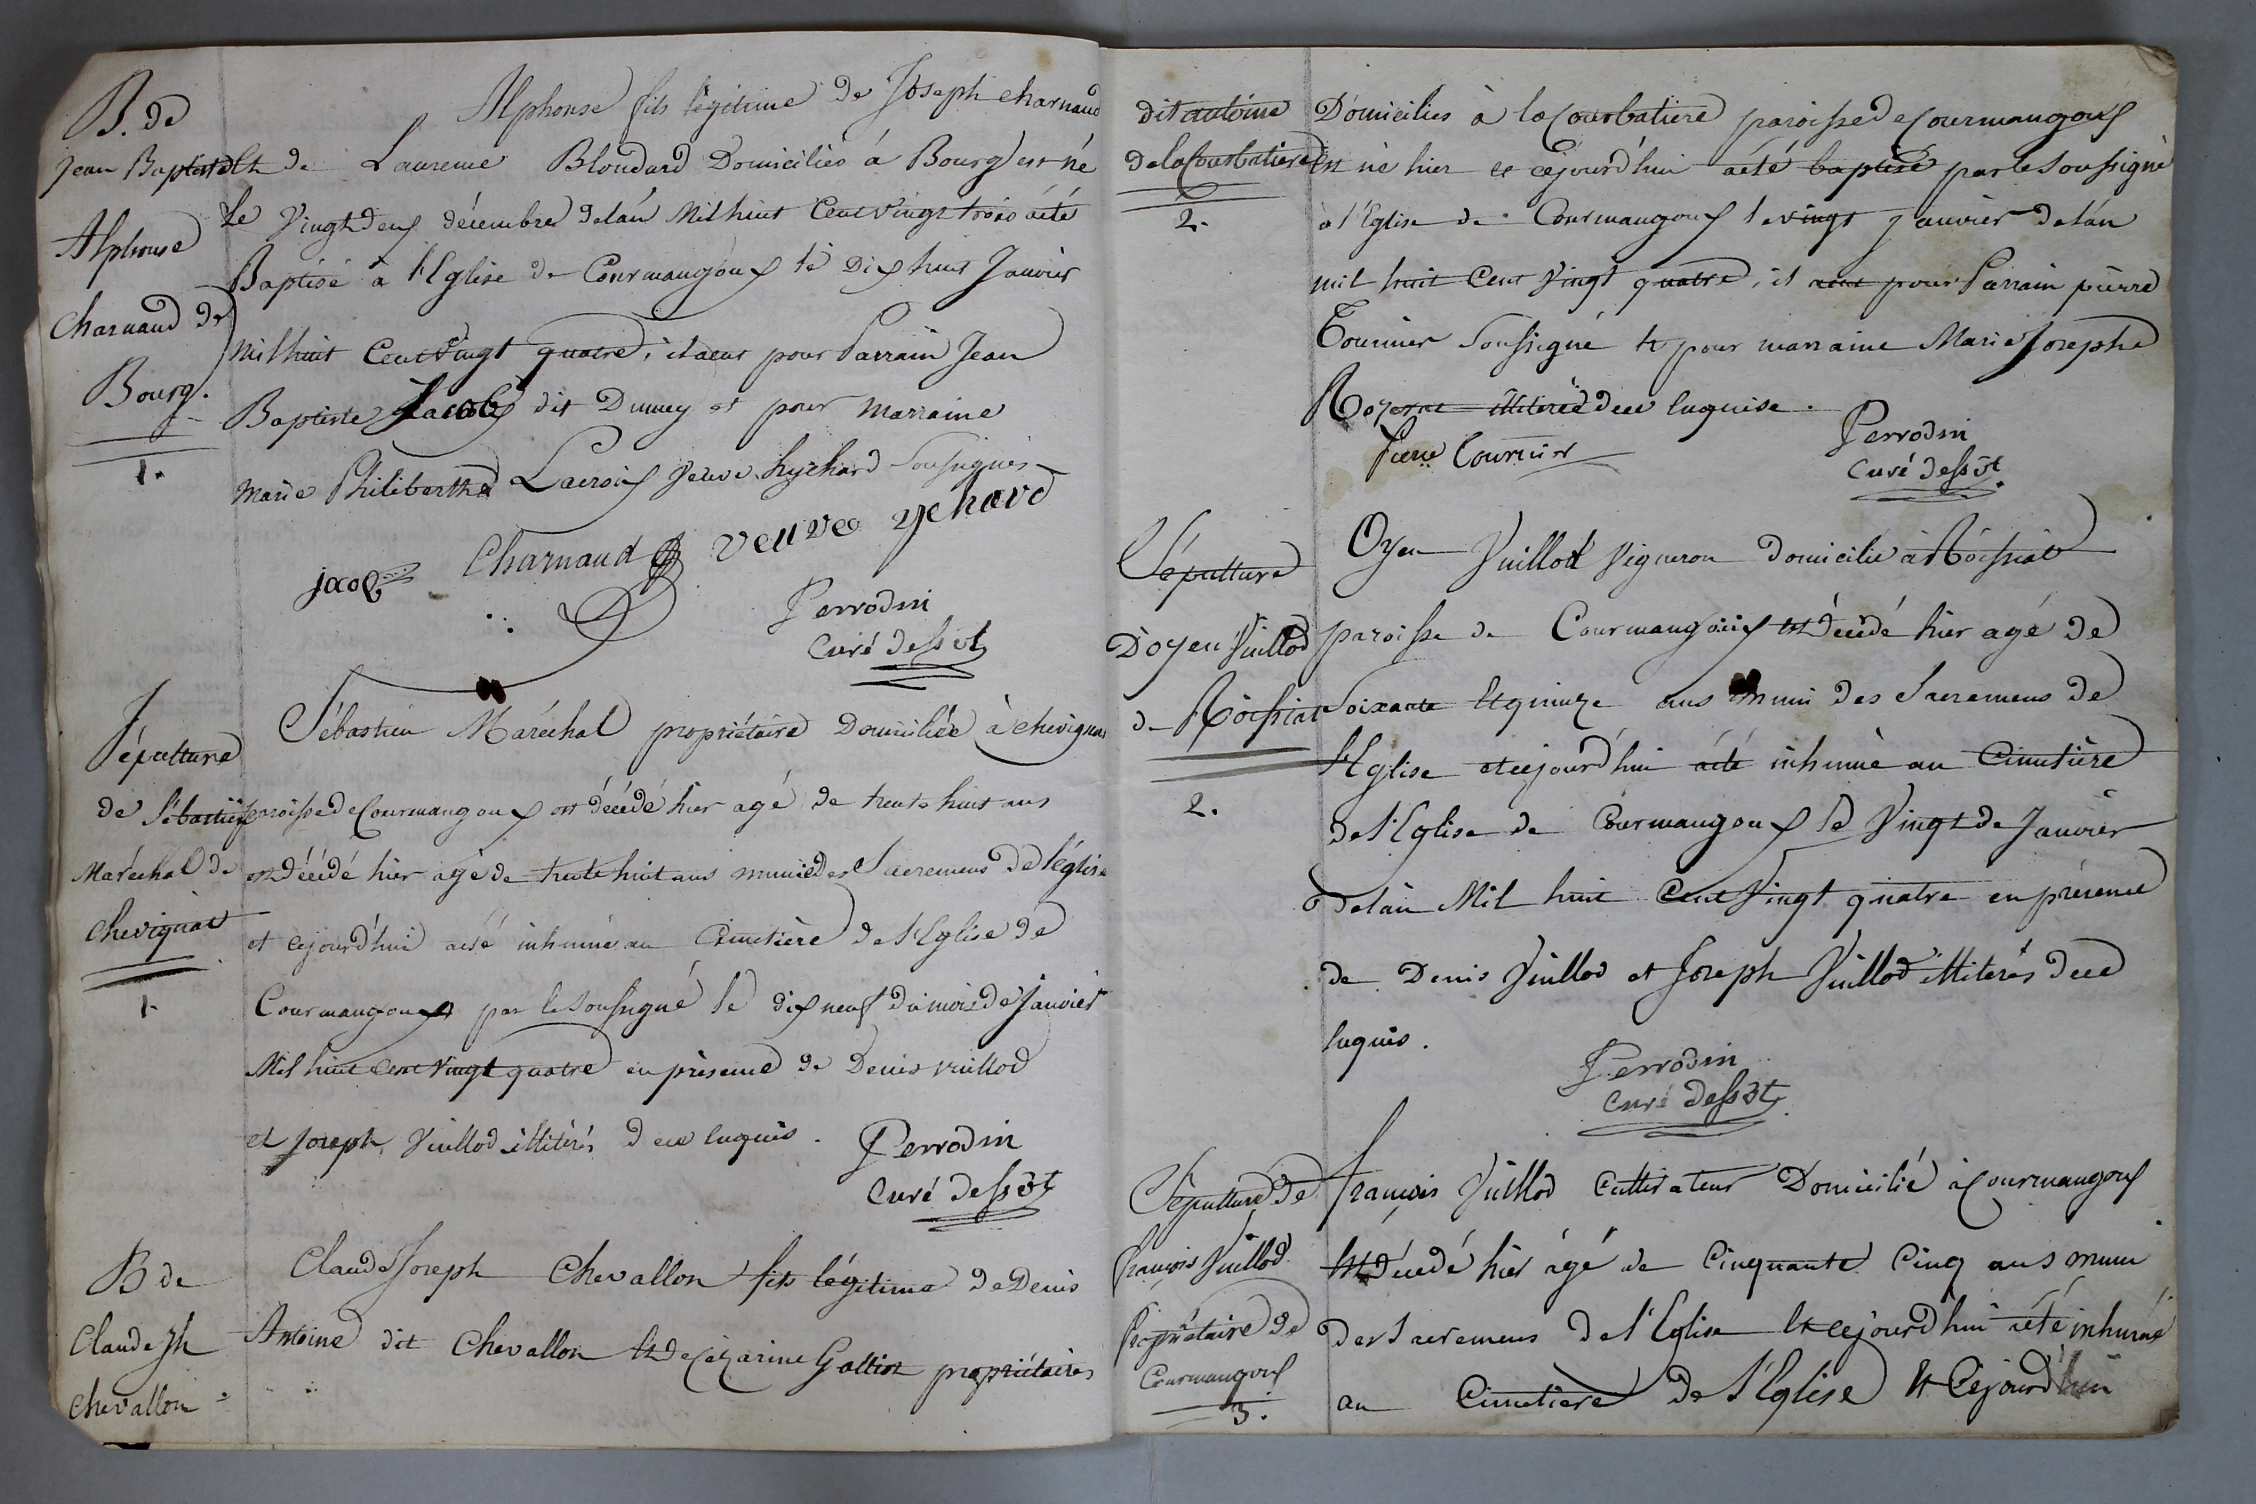 B. de
Jean Baptiste
Alphonse
Charnaud de
Bourg.
1.
Alphonse fils légitime de Joseph Charnaud
et de Laurence Blondard Domiciliés à Bourg est né
Le Vingt deux décembre de l'an Mil huit Cent vingt trois a été
Baptisé à l'Eglise de Courmangoux le Dix huit Janvier
Mil huit Cent Vingt quatre, il a eut pour Parrain Jean
Baptiste Jacob dit Dumey et pour Marraine
Marie Philiberthe Lacroix Veuve hychard Soussignés
jacob Charnaud veuve ychard
Perrodin
Curé dessvt
Sépulture
de Sébastien
Maréchal de
Chevignat
1.
Sébastien Maréchal propriétaire Domiciliée à chevignat
paroisse de Courmangoux est décédé hier agé de trente huit ans
est décédé hier agé de trente huit ans munie des Sacremens de l'église
et cejourd'hui a été inhumé au Cimetière de l'Eglise de
Courmangoux par le soussigné le dix neuf du mois de Janvier
Mil huit Cent Vingt quatre en présence de Denis Vuillod
et Joseph Vuillod illitérés de ce enquis.
Perrodin
Curé dessvt
B de
Claude Jh
Chevallon
Claude Joseph Chevallon fils légitime de Denis
Antoine dit Chevallon et de Cézarine Gallion propriétaires
dit antoine
de la Courbatiere
2.
Domicilies à la Courbatiere paroisse de Courmangoux
Est né hier et cejourd'hui a été baptisé par le Soussigné
à l'Eglise de Courmangoux le vingt Janvier de l'an
mil huit Cent Vingt quatre, il a eut pour Parrain pierre
Tournier Soussigné et pour marraine Marie Josephe
Royer illitérée de ce enquise.
Pierre Tournier
Perrodin
Curé dessvt
Sépulture
D'oyen Vuillod
de Roissiat
2.
Oyen Vuillod Vigneron domicilié à Roissiat
paroisse de Courmangoux est décédé hier agé de
Soixante et quinze ans muni des Sacremens de
l'Eglise et cejourd'hui a été inhumé au Cimetière
de l'Eglise de Courmangoux le Vingt de Janvier
de l'an Mil huit Cent Vingt quatre en présence
de Denis Vuillod et Joseph Vuillod illiterés de ce
enquis.
Perrodin
Curé dessvt
Sépulture de
françois Vuillod
Propriétaire de
Courmangoux
3.
françois Vuillod Cultivateur Domicilié à Courmangoux
Est décédé hier âgé de Cinquante Cinq ans muni
des Sacremens de l'Eglise Et cejourd'hui a été inhumé
au Cimetière de l'Eglise Et Cejourd'hui